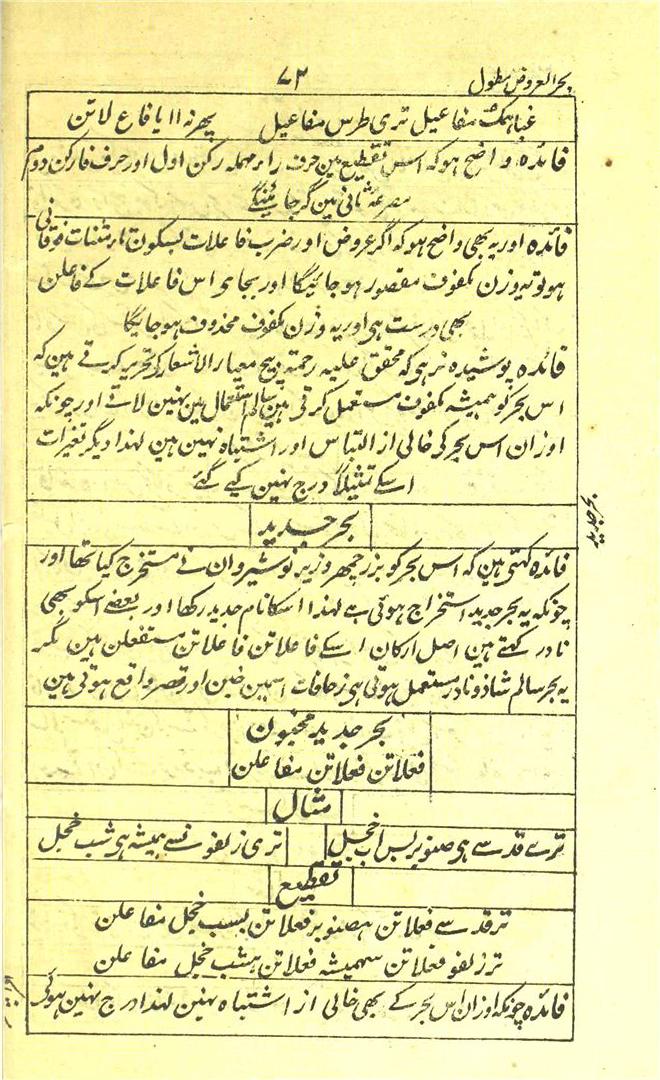 بحر العروض مطول
۷۳
غباهنک مفاعیل تری طرس مفاعیل پھر نہ اا یا فاع لاتن
فائدہ واضح ہو کہ اس تقطیع مین حرف را مہملہ رکن اول اور حرف فا رکن دوم
مصرعۂ ثانی مین گر جائینگے
فائدہ اور یہ بھی واضح ہو کہ اگر عروض اور ضرب فاعلات بسکون تا مثنات فوقانی
ہو تو یہ وزن مکفوف مقصور ہو جائیگا اور بجای اس فاعلات کے فاعلن
بھی درست ہی اور یہ وزن مکفوف محذوف ہو جائیگا
فائدہ پوشیدہ نرہی کہ محقق علیہ رحمۃ بیچ معیار الاشعار کو تحریر کرتے ہین کہ
اس بحر کو ہمیشہ مکفوف مستعمل کرتی ہین سالم استعمال مین نہین لاتے اور چونکہ
اوزان اس بحر کی خالی از التباس اور اشتباہ نہین ہین لہذا دیگر تغیرات
اسکے تمثیلاً درج نہین کیے گئے
بحر جدید
بحر جدید
فائدہ کہتی ہین کہ اس بحر کو بزرجمہر وزیر نوشیروان نے مستخرج کیا تھا اور
چونکہ یہ بحر جدید استخراج ہوئی ہے لہذا اسکا نام جدید رکھا اور بعضے اسکو بھی
نادر کہتے ہین اصل ارکان اسکے فاعلاتن فاعلاتن مستفعلن ہین مگر
یہ بحر سالم شاذ و نادر مستعمل ہوتی ہی زحافات اسمین خبن اور قصر واقع ہوتی ہین
بحر جدید مخبون
فعلاتن فعلاتن مفاعلن
مثال
ترے قد سے ہی صنوبر بس اب خجل تری زلفو نسے ہمیشہ ہی شب خجل
تقطیع
ترقد سے فعلاتن ہصنوبر فعلاتن بسب خجل مفاعلن
تر زلفو فعلاتن سہمیشہ فعلاتن ہشب خجل مفاعلن
فائدہ چونکہ اوزان اس بحر کے بھی خالی از اشتباہ نہین لہذا درج نہین ہوئی